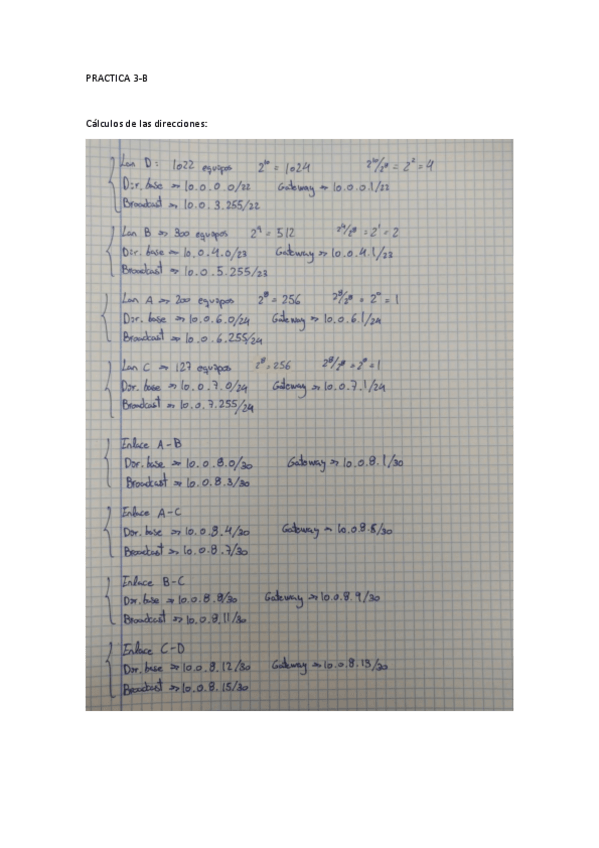 PRACTICA 3-B
Cálculos de las direcciones:
Lan D: 1022 equipos 2^10 = 1024 2^10/2^8 = 2^2 = 4
Dir. base => 10.0.0.0/22 Gateway => 10.0.0.1/22
Broadcast => 10.0.3.255/22
Lan B => 300 equipos 2^9 = 512 2^9/2^8 = 2^1 = 2
Dir. base => 10.0.4.0/23 Gateway => 10.0.4.1/23
Broadcast => 10.0.5.255/23
Lan A => 200 equipos 2^8 = 256 2^8/2^8 = 2^0 = 1
Dir. base => 10.0.6.0/24 Gateway => 10.0.6.1/24
Broadcast => 10.0.6.255/24
Lan C => 127 equipos 2^8 = 256 2^8/2^8 = 2^0 = 1
Dir. base => 10.0.7.0/24 Gateway => 10.0.7.1/24
Broadcast => 10.0.7.255/24
Enlace A-B
Dir. base => 10.0.8.0/30 Gateway => 10.0.8.1/30
Broadcast => 10.0.8.3/30
Enlace A-C
Dir. base => 10.0.8.4/30 Gateway => 10.0.8.5/30
Broadcast => 10.0.8.7/30
Enlace B-C
Dir. base => 10.0.8.8/30 Gateway => 10.0.8.9/30
Broadcast => 10.0.8.11/30
Enlace C-D
Dir. base => 10.0.8.12/30 Gateway => 10.0.8.13/30
Broadcast => 10.0.8.15/30